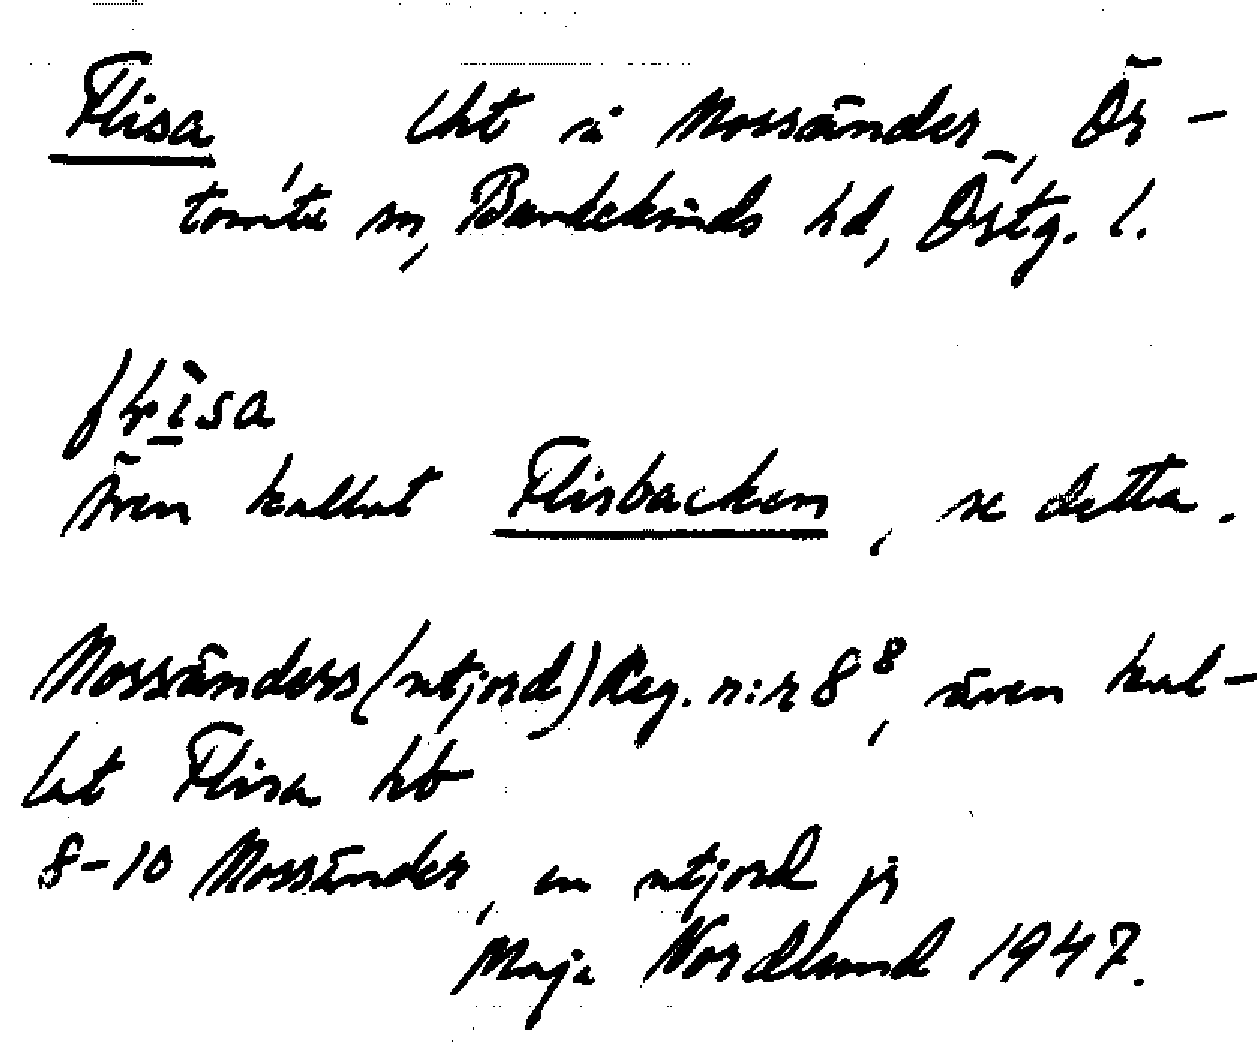 Flisa lht i Mossänder, Ör-
tomta sn, Bankekinds hd, Östg. l.
Även kallat Flisbacken, se detta.
Mossänders (utjord) Reg. n:r 8⁸, även kal-
lat Flisa hb
8-10 Mossänder, en utjord jr
Maja Nordlund 1947.